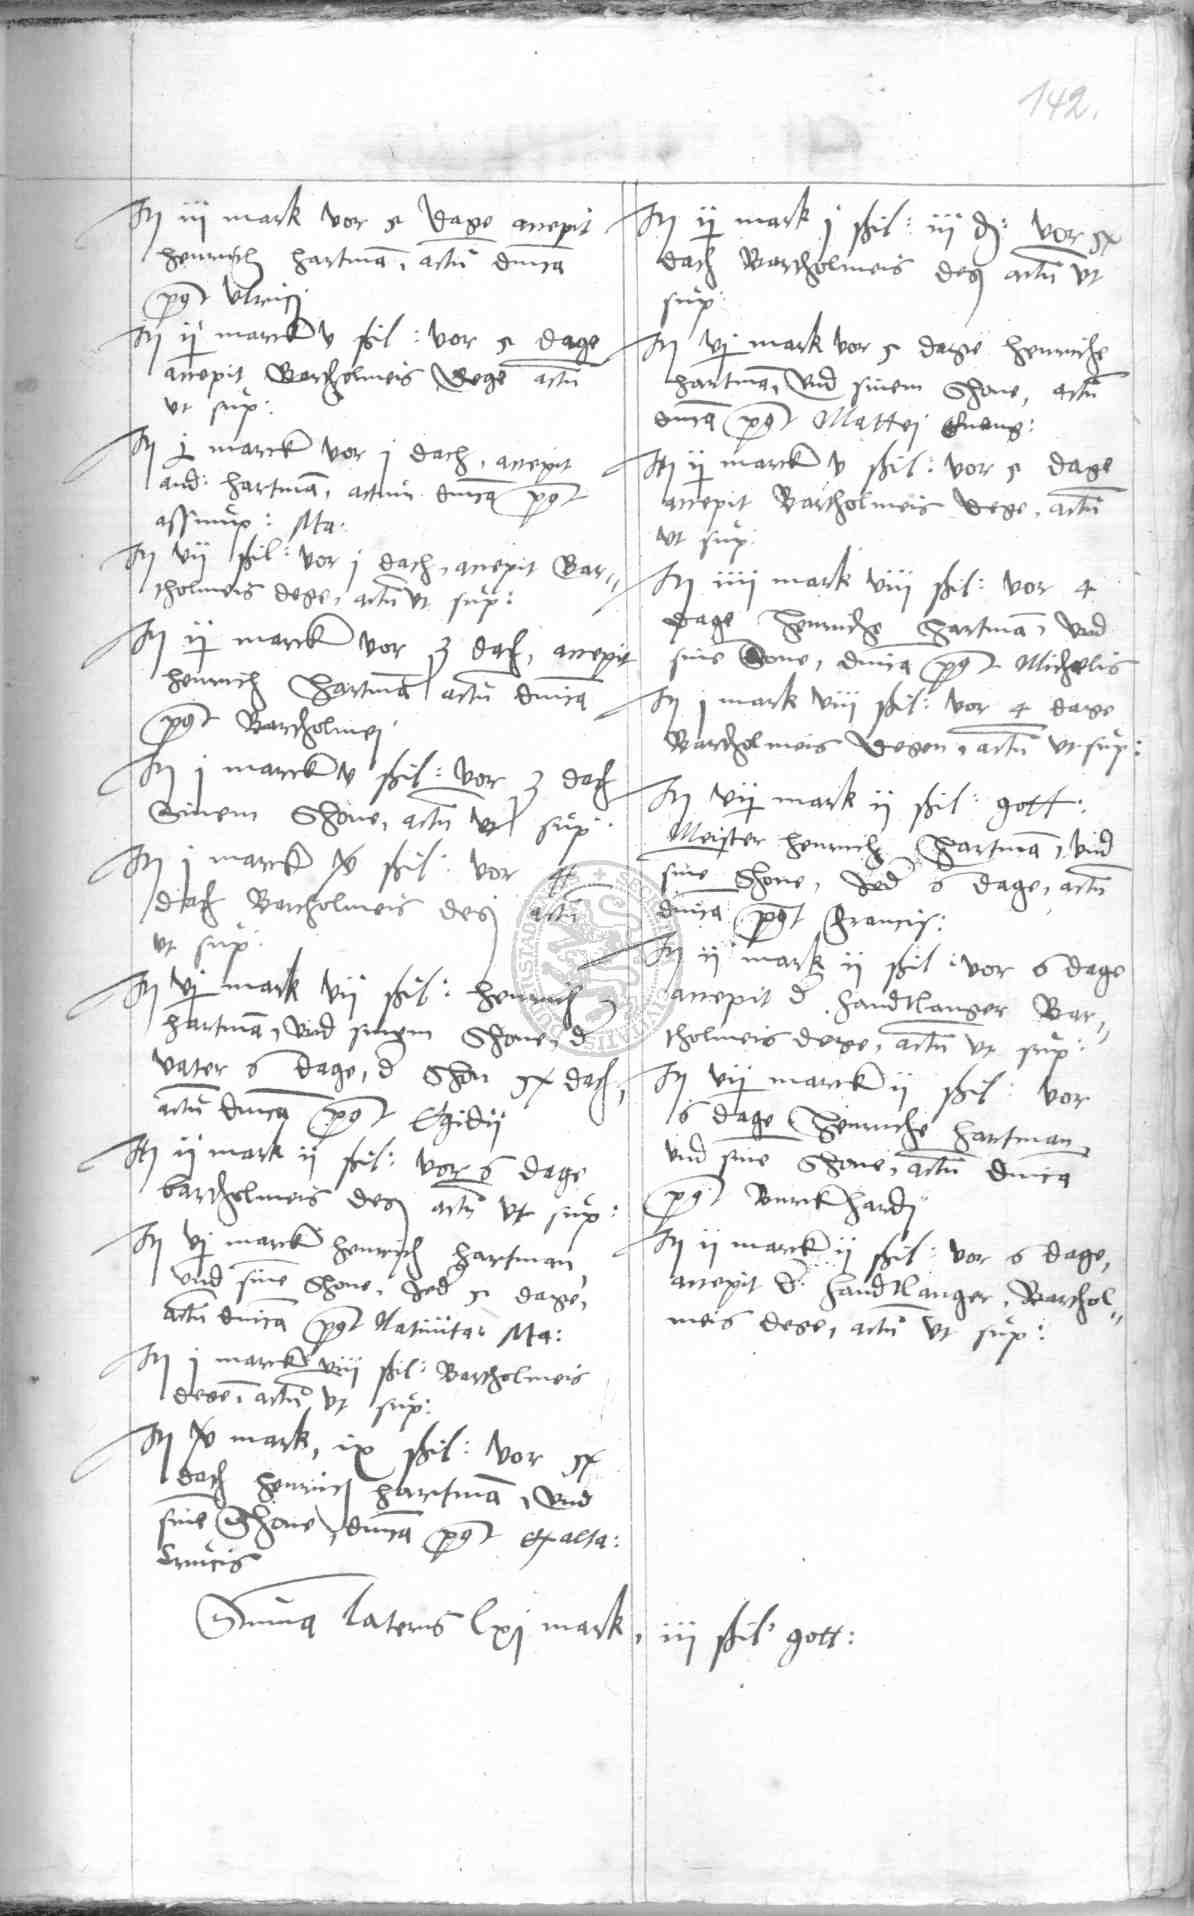 142.
It iii mark vor 5 dage accepit
Henrich Hartmā, actū dnica
pꝰt Vlrici
It ij marck v ßil: vor 5 dage
accepit Bartholmeis dege actū
vt sup:
It j marck vor j dach, accepit
and: Hartmā, actum dnica pꝰt
assump: Ma:
It vii ßil: vor j dach, accepit Bar=
tholmeis dege, actū vt sup:
It ij marck vor 3 dach, accepit
Henrich Hartmā actū dnica
pꝰt Bartholmei
It j marck v ßil: vor 3 dach
Sinem Shone, actū vt sup:
It j marck ßil: vor 4
dach Bartholmeis deg actū
vt sup:
It vj mark vii ßil: Henrich
Hartmā, vnd sinem Shone, d
vater 6 dage, d Shon dach,
actū dnica pꝰt Egidij
It ij mark ij ßil: vor 6 dage
bartholmeis deg actū vt sup:
It vj marck Henrich Hartman,
vnd sine Shone, Jed 5 dage,
actū dnica pꝰt Natiuitat Ma:
It j marck viij ßil: Bartholmeis
dege, actū vt sup:
It mark, ix ßil: vor
dach Henrich Hartmā, vnd
sine Shone, dnica pꝰt exalta:
Crucis
It ij mark j ßil: iij d: vor
dach Bartholmeis deg actū vt
sup:
It vj mark vor 5 dage Henriche
Hartmā, vnd sinem Shone, actū
dnica pꝰt Mattei Euang:
It ij marck v ßil: vor 5 dage
accepit Bartholmeis dege, actū
vt sup:
It iiij mark viij ßil: vor 4
dage Henriche Hartmā, vnd
sine Sone, dnica pꝰt Michelis
It j mark viij ßil: vor 4 dage
Bartholmeis degen, actū vt sup:
It vij mark ij ßil: gott:
Meister Henrich Hartmā, vnd
sine Shone, Jed 6 dage, actū
dnica pꝰt Francis:
It ij mark ij ßil: vor 6 dage
accepit d handtlanger Bar=
tholmeis dege, actū vt sup:
It vij marck ij ßil: vor
6 dage Henriche Hartman
vnd sine Shone, actū dnica
pꝰt Burckhardj
It ij marck ij ßil: vor 6 dage,
accepit d handtlanger, Barthol=
meis dege, actū vt sup:
Suma lateris lxj mark, iij ßil gott: